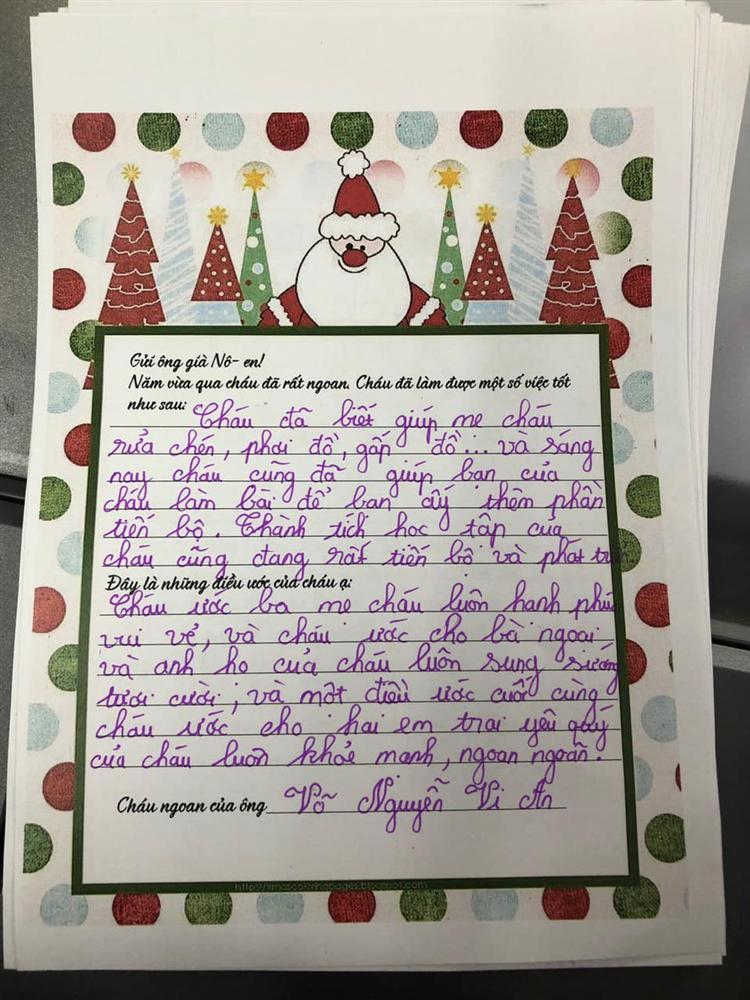 Gửi ông già Nô- en!
Năm vừa qua cháu đã rất ngoan. Cháu đã làm được một số việc tốt
như sau: Cháu đã biết giúp mẹ cháu
rửa chén, phơi đồ, gấp đồ... và sáng
nay cháu cũng đã giúp bạn của
cháu làm bài để bạn ấy thêm phần
tiến bộ. Thành tích học tập của
cháu cũng đang rất tiến bộ và phát
Đây là những điều ước của cháu ạ:
Cháu ước ba mẹ cháu luôn hạnh phúc
vui vẻ, và cháu ước cho bà ngoại
và anh họ của cháu luôn sung sướng
tươi cười; và một điều ước cuối cùng
cháu ước cho hai em trai yêu quý
của cháu luôn khoẻ mạnh, ngoan ngoãn.
Cháu ngoan của ông Võ Nguyễn Vi An